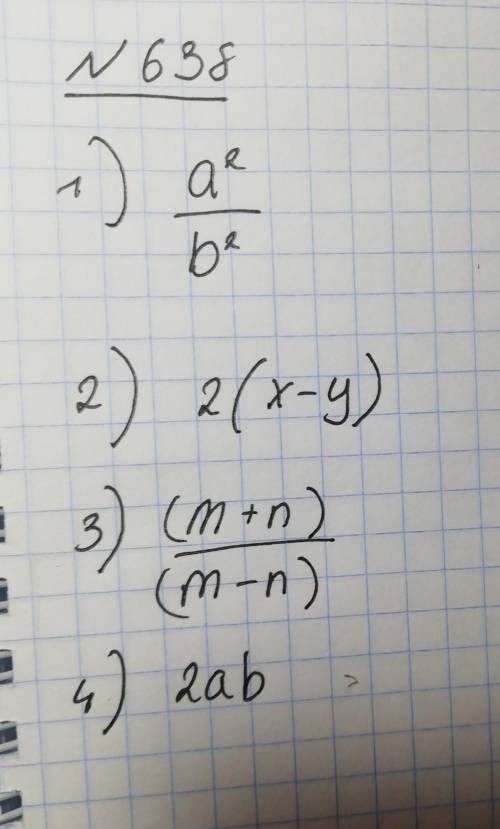 N 638
1) a²/b²
2) 2(x-y)
3) (m+n)/(m-n)
4) 2ab